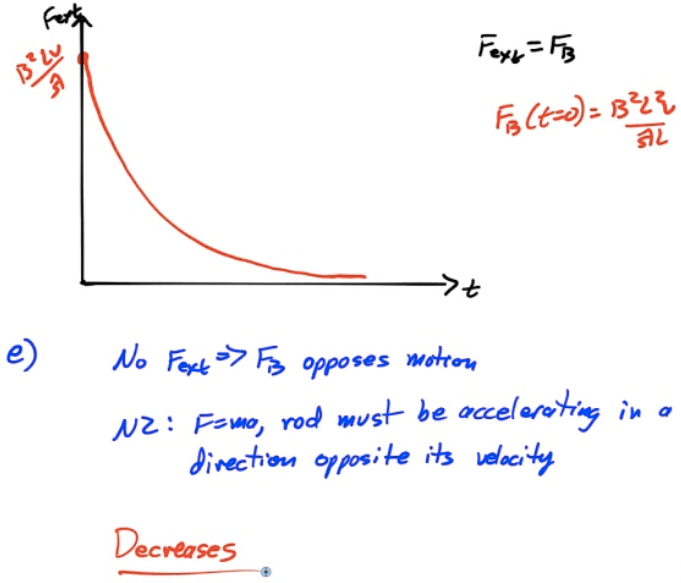 Fext
Fext = FB
B²Lv/λ
FB(t=0) = B²L²v/λL
t
e) No Fext => FB opposes motion
N2: F=ma, rod must be accelerating in a
direction opposite its velocity
Decreases